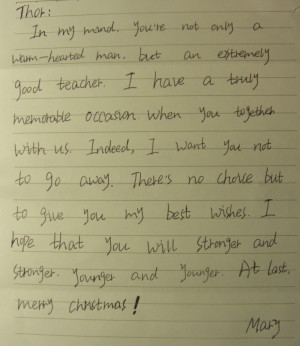 Thor:
In my mind. you're not only a
warm-hearted man. but an extremely
good teacher. I have a truly
memorable occasion when you together
with us. Indeed, I want you not
to go away. There's no choice but
to give you my best wishes. I
hope that you will stronger and
stronger. younger and younger. At last,
merry christmas!
Mary